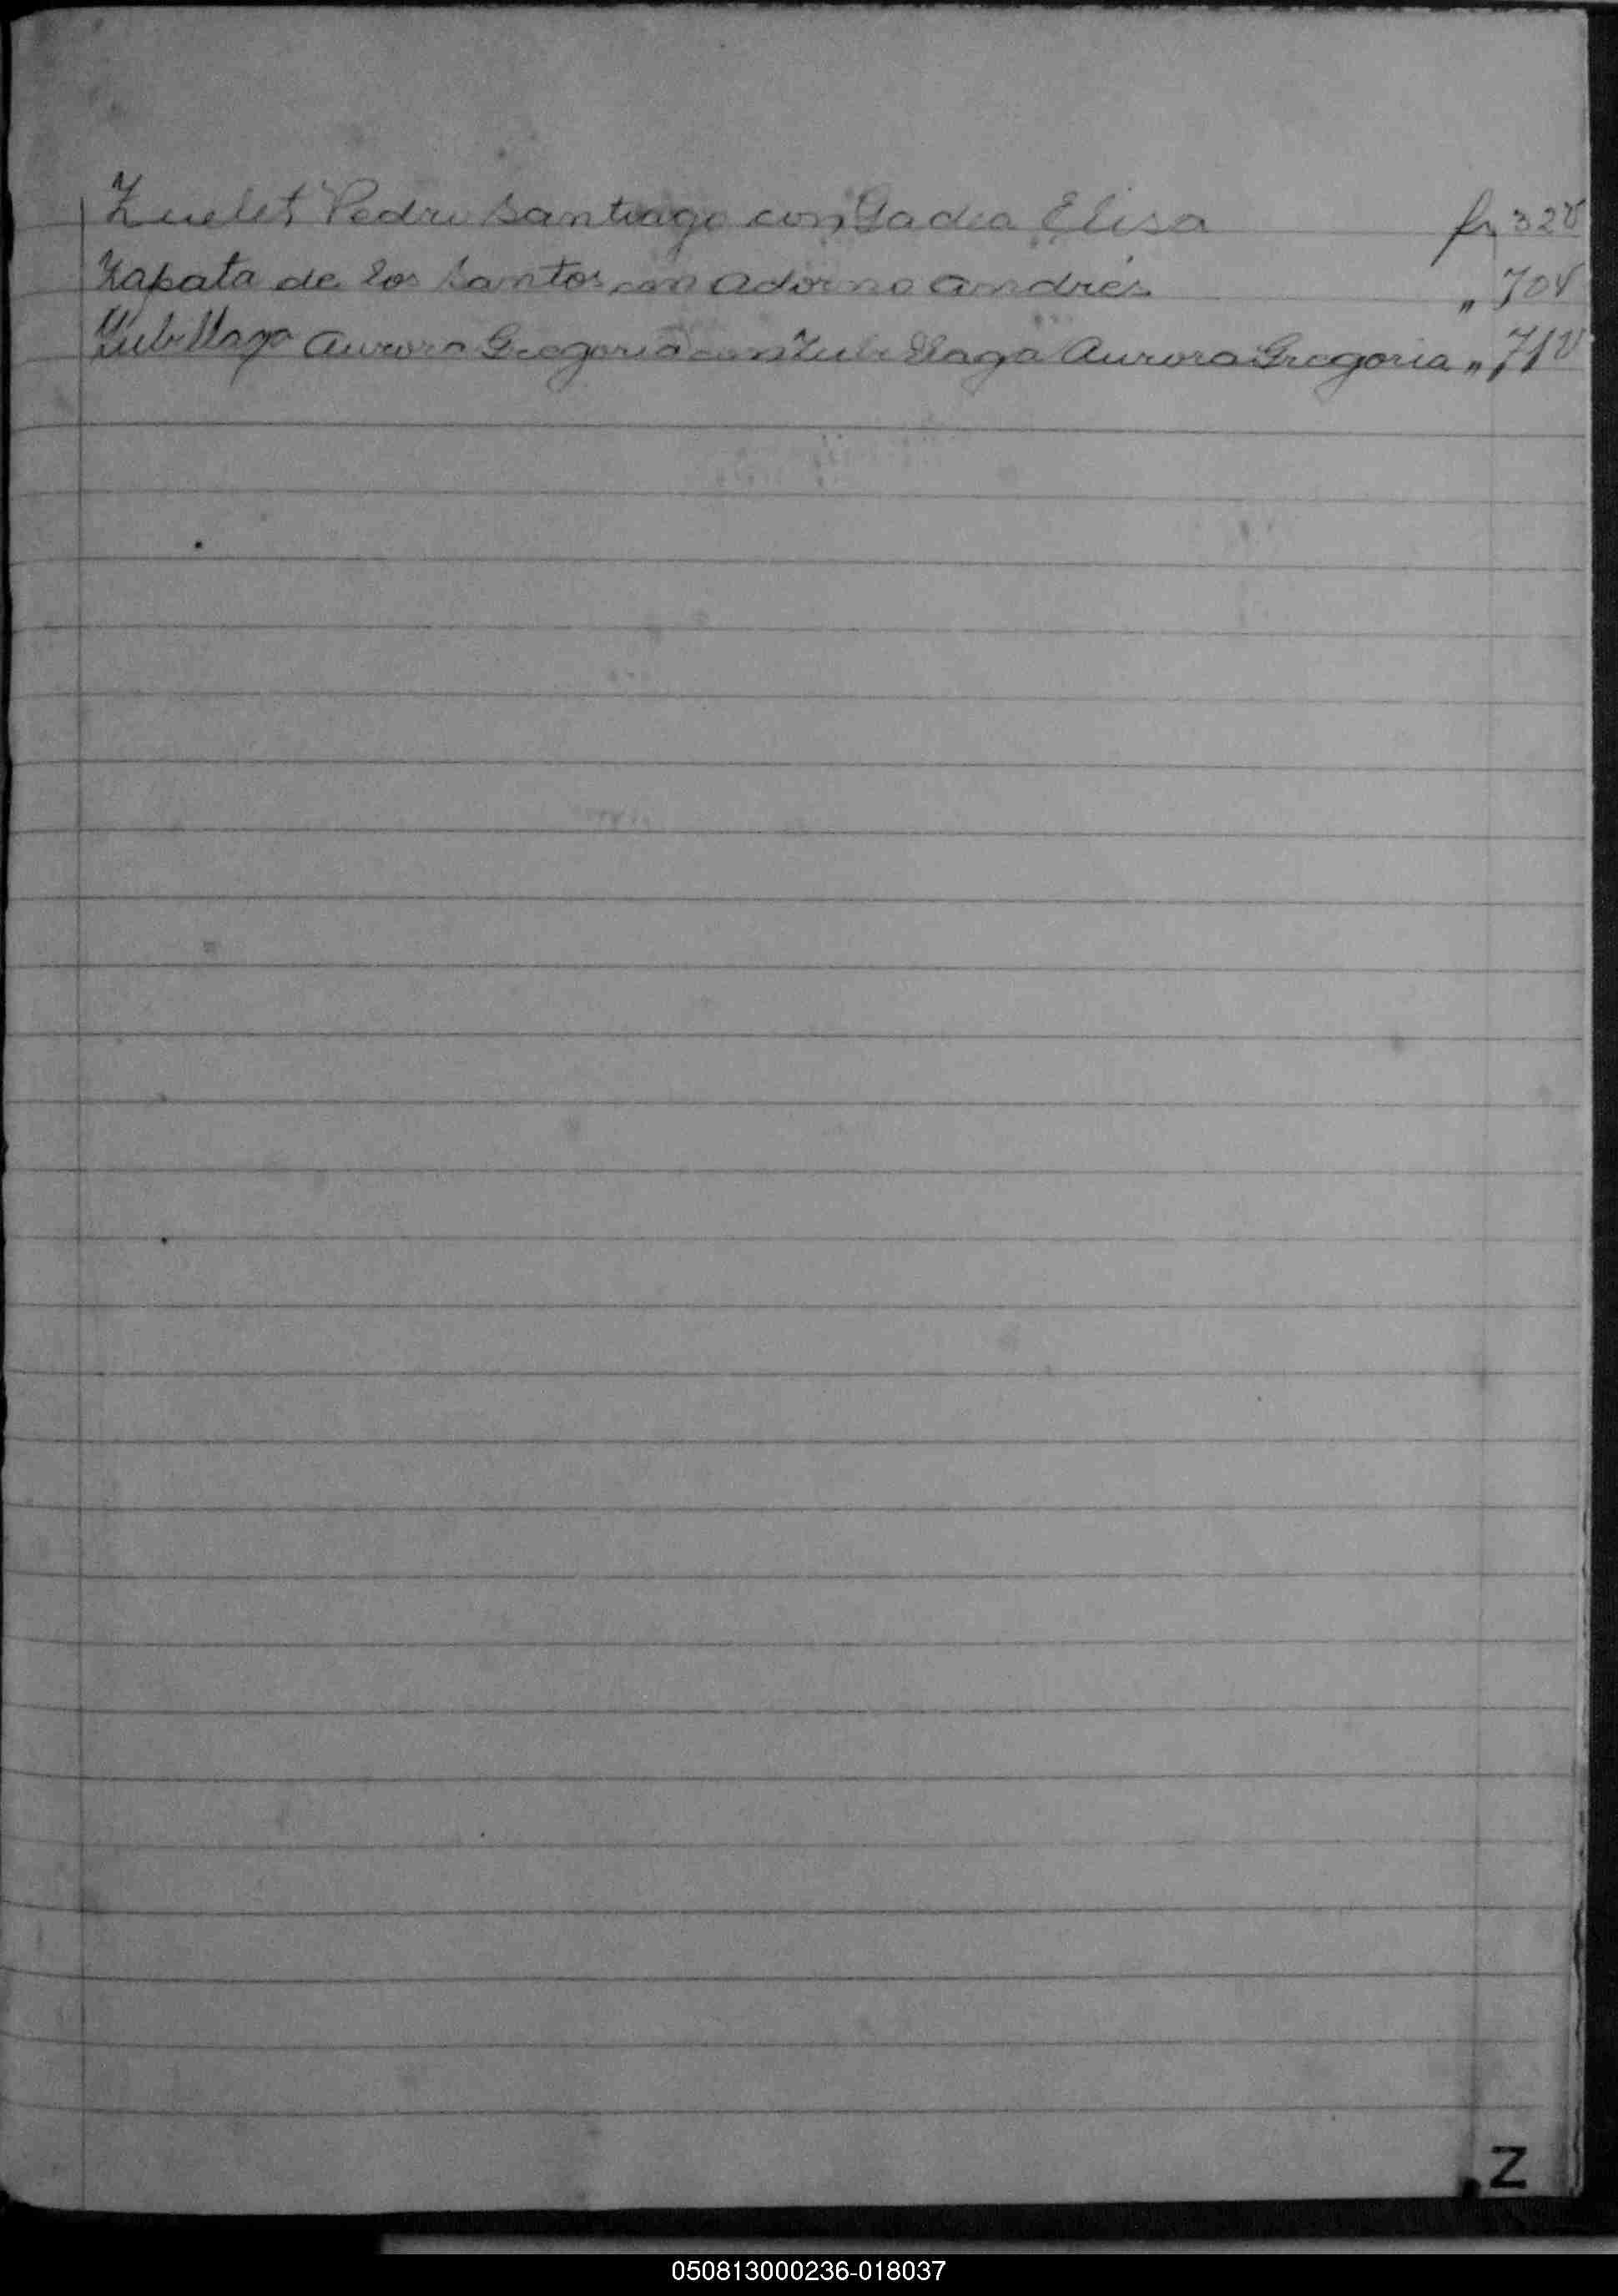 Zuelet Pedro Santiago con Gadea Elisa fs 32v
Zapata de los Santos con Adorno Andrés " 70v
Zubillaga Aurora Gregoria con Zubillaga Aurora Gregoria " 71v
Z
050813000236-018037